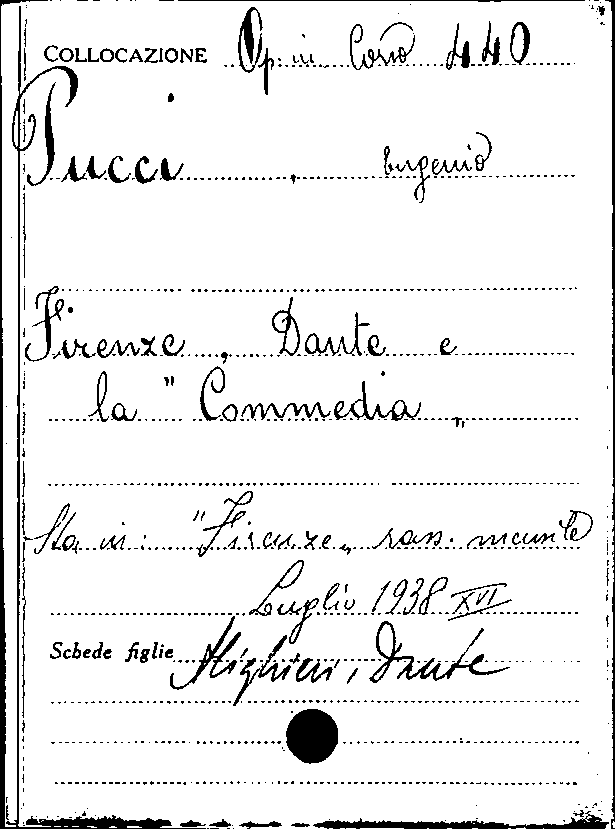 COLLOCAZIONE Op. in Corso 440
Pucci, Eugenio
Firenze, Dante e
la "Commedia„
Sta in: "Firenze„ rass. mensile
Luglio 1938 XVI
Schede figlie Alighieri, Dante